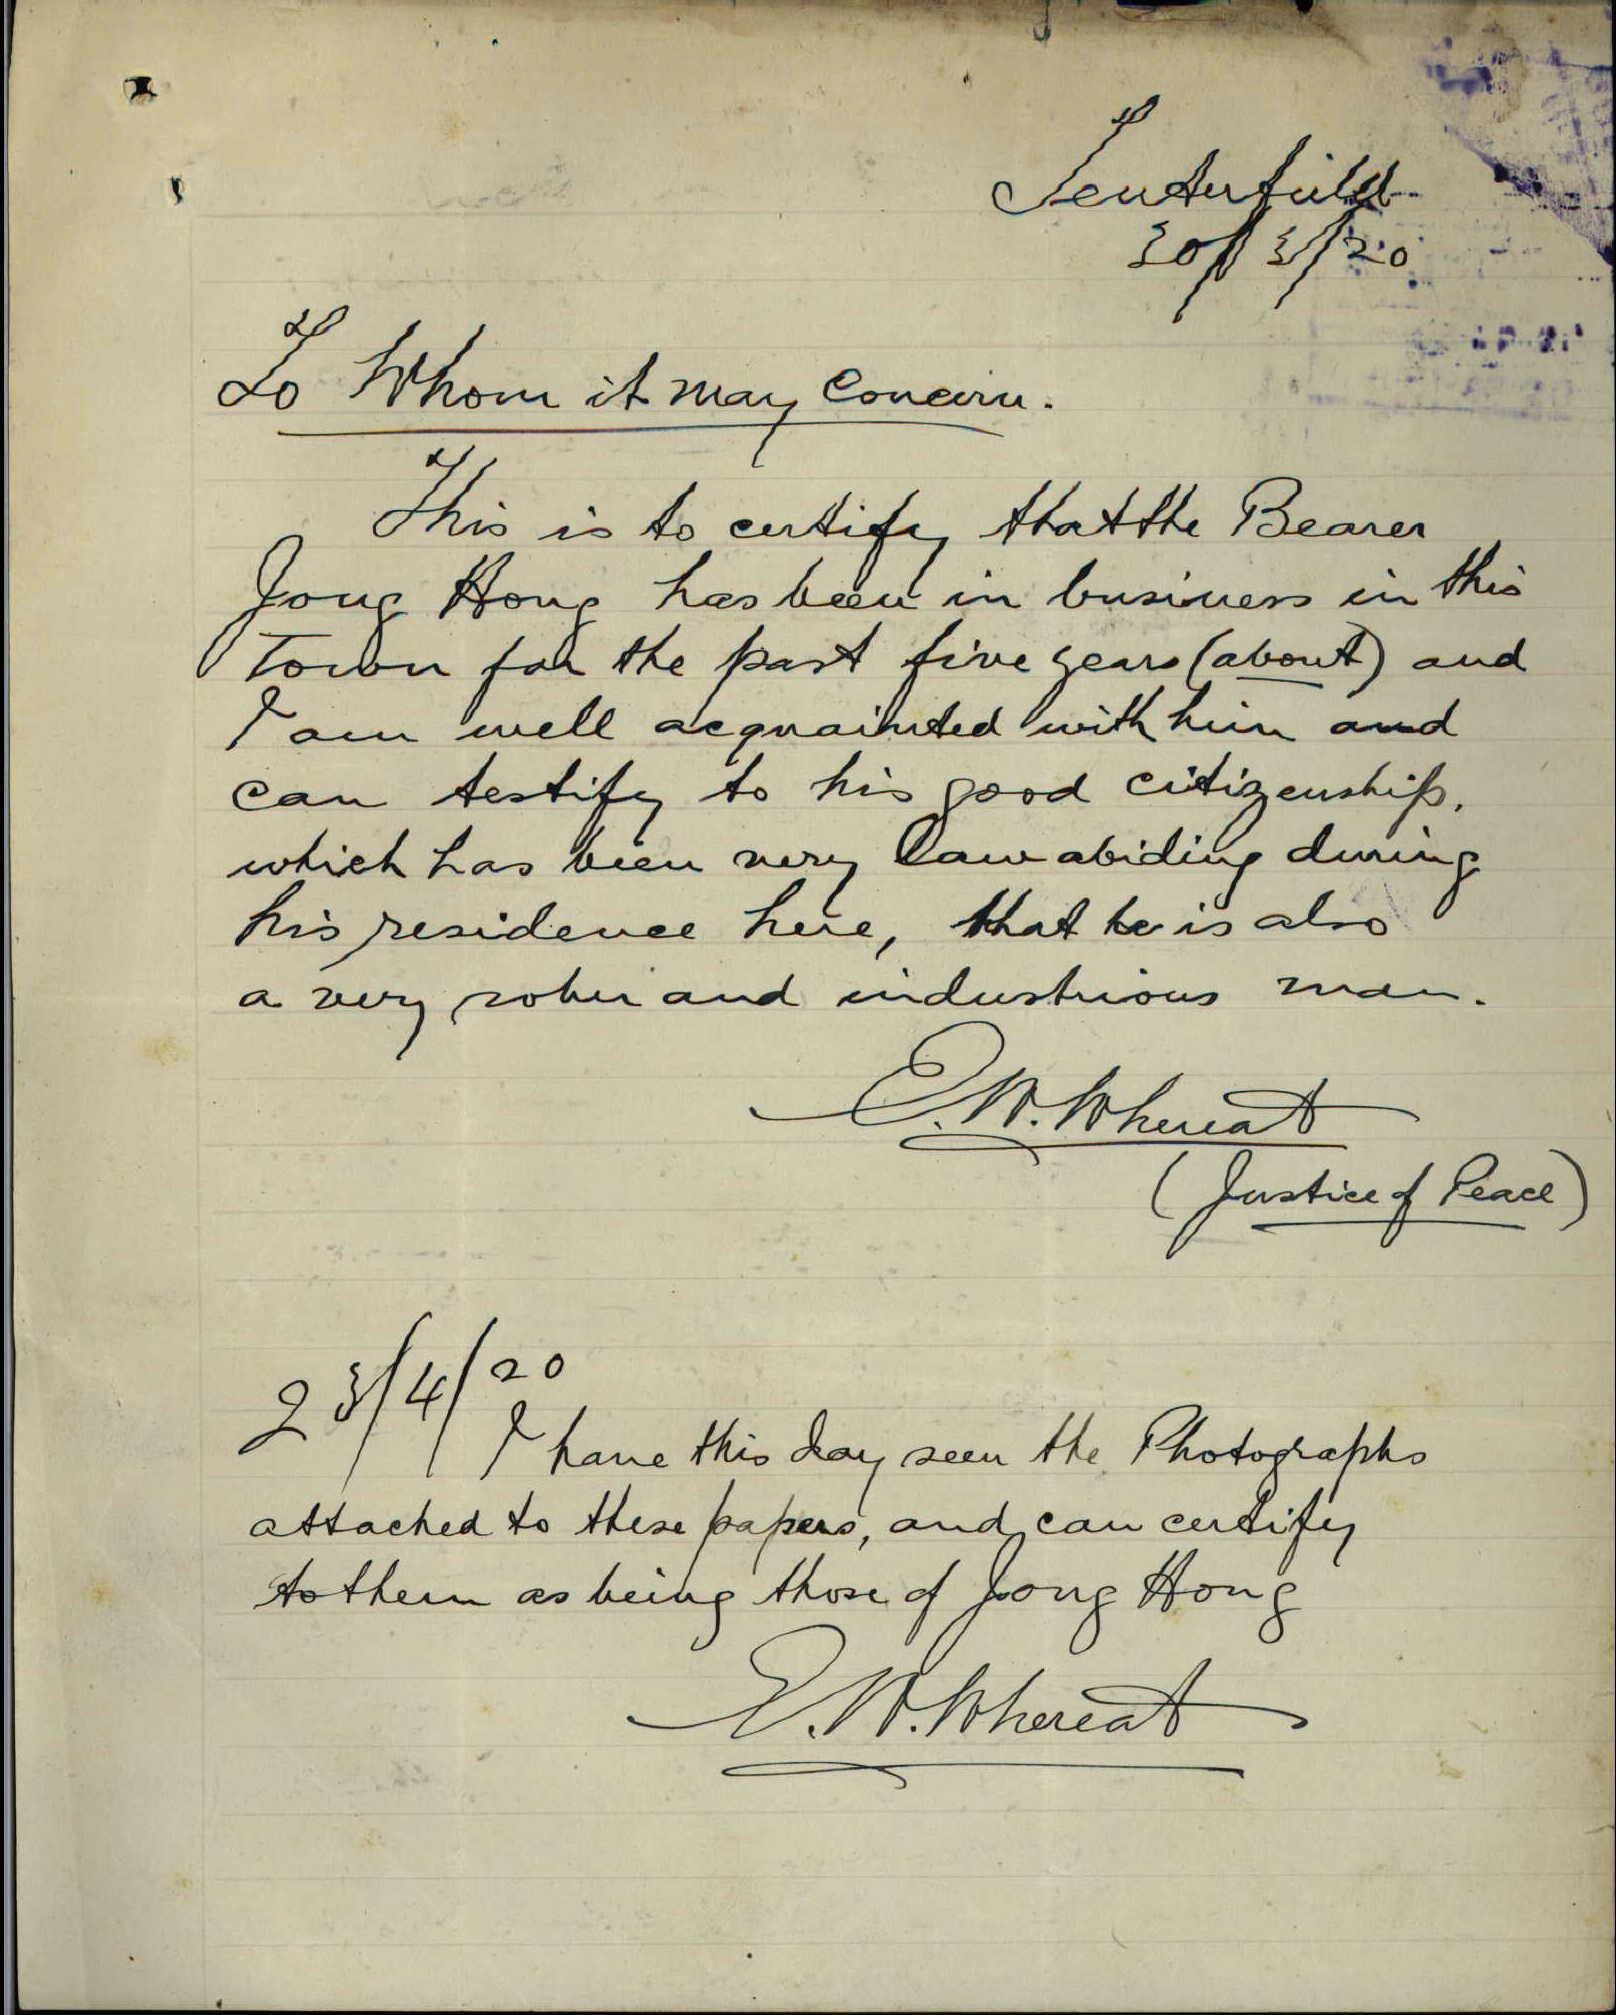 Tenterfield
30/3/20
To Whom it may Concern.
This is to certify that the Bearer
Jong Hong has been in business in this
Town for the past five years (about) and
I am well acquainted with him and
can testify to his good citizenship,
which has been very law abiding during
his residence here, that he is also
a very sober and industrious man.
E. W. Whereat
(Justice of Peace)
23/4/20
I have this day seen the Photographs
attached to these papers, and can certify
to them as being those of Jong Hong
E. W. Whereat